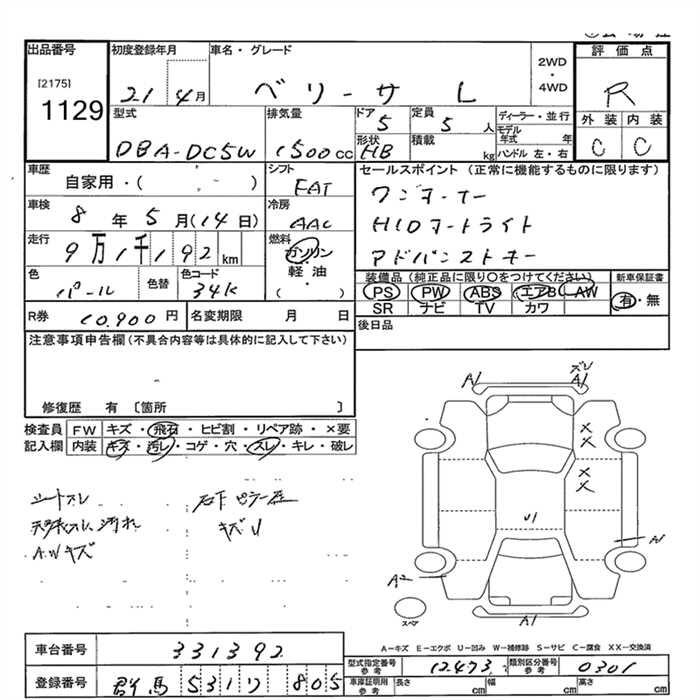 出品番号
[2175]
1129
初度登録年月
21 4月
車名・グレード
ベリーサ L
2WD
・
4WD
評 価 点
R
型式
DBA-DC5W
排気量
1500cc
ドア
5
定員
5 人
形状
HB
積載
kg
ディーラー・並行
モデル
年式 年
ハンドル 左・右
外 装 内 装
C C
車歴
自家用・( )
シフト
FAT
車検
8 年 5 月(14 日)
冷房
AAC
走行
9万1千192 km
燃料
ガソリン
軽 油
( )
色
パール
色替
色コード
34K
R券 10,900 円
名変期限 月 日
セールスポイント (正常に機能するものに限ります)
ワンオーナー
HIDヘッドライト
アドバンストキー
装備品(純正品に限り〇をつけてください)
PS PW ABS エアB AW
SR ナビ TV カワ
新車保証書
有・無
後日品
注意事項申告欄(不具合内容等は具体的に記入して下さい)
修復歴 有 〔箇所 〕
検査員
記入欄
FW キズ・飛石・ヒビ割・リペア跡・×要
内装 キズ・汚レ・コゲ・穴・スレ・キレ・破レ
シートスレ
汚れ
A.Wキズ
キズU
A1
ズレ
A1
×
×
×
×
U1
A1
A2
A1
スペア
A-キズ E-エクボ U-凹み W-補修跡 S-サビ C-腐食 XX-交換済
車台番号 331392
登録番号 群馬 531ワ 805
型式指定番号
参考
12473
類別区分番号
参考
0301
車庫証明用
参考
長さ cm
幅 cm
高さ cm